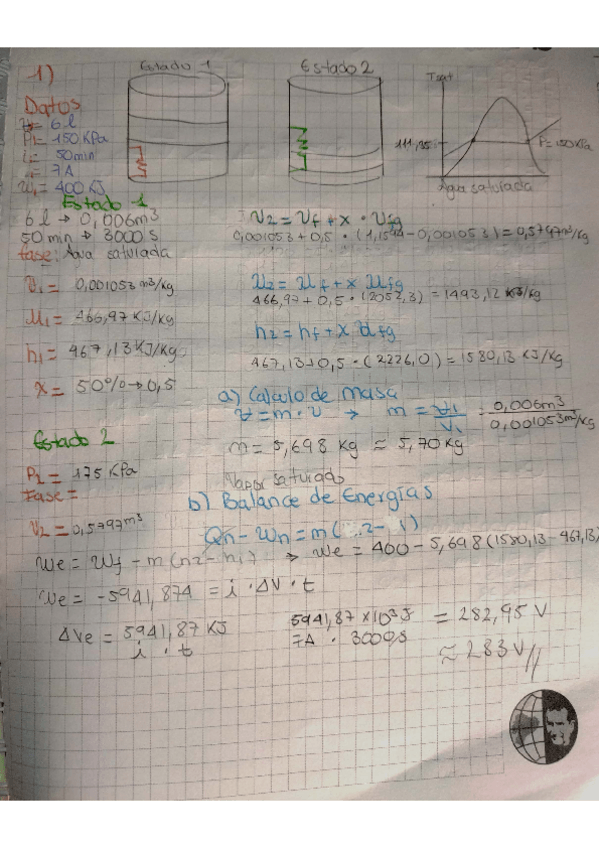 1)
Estado 1
Estado 2
Tsat
Datos
V= 6 l
P1= 150 KPa
i= 50min
= 7A
W1= 400 KJ
111,35
P=150KPa
Agua saturada
Estado 1
6 l → 0,006m3
50 min → 3000 S
fase: Agua saturada
V1= 0,001053 m3/kg
U1= 466,97 KJ/kg
h1= 467,13 KJ/kg
x= 50% → 0,5
V2 = Vf + x · Vfg
0,001053 + 0,5 · (1,1594 - 0,001053) = 0,5797 m3/kg
U2 = Uf + x Ufg
466,97 + 0,5 · (2052,3) = 1493,12 KJ/kg
h2 = hf + x Ufg
467,13 + 0,5 · (2226,0) = 1580,13 KJ/kg
a) Calculo de masa
V = m · v → m = V1 / V1 = 0,006m3 / 0,001053m3/kg
m = 5,698 kg ≈ 5,70 kg
Estado 2
P2= 175 KPa
Fase =
Vapor saturado
V2 = 0,5797 m3
b) Balance de Energías
Qn - Wn = m( 2 - )
We = Wf - m(h2 - h1) → We = 400 - 5,698 (1580,13 - 467,13)
We = -5941,874 = i · ΔV · t
ΔVe = 5941,87 KJ / i · t
5941,87 x10³J / 7A · 3000s = 282,95 V
≈ 283 V //